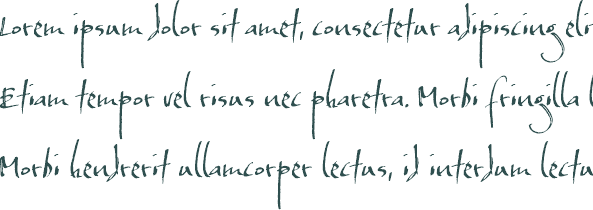 Lorem ipsum dolor sit amet, consectetur adipiscing eli
Etiam tempor vel risus nec pharetra. Morbi fringilla l
Morbi hendrerit ullamcorper lectus, id interdum lectu